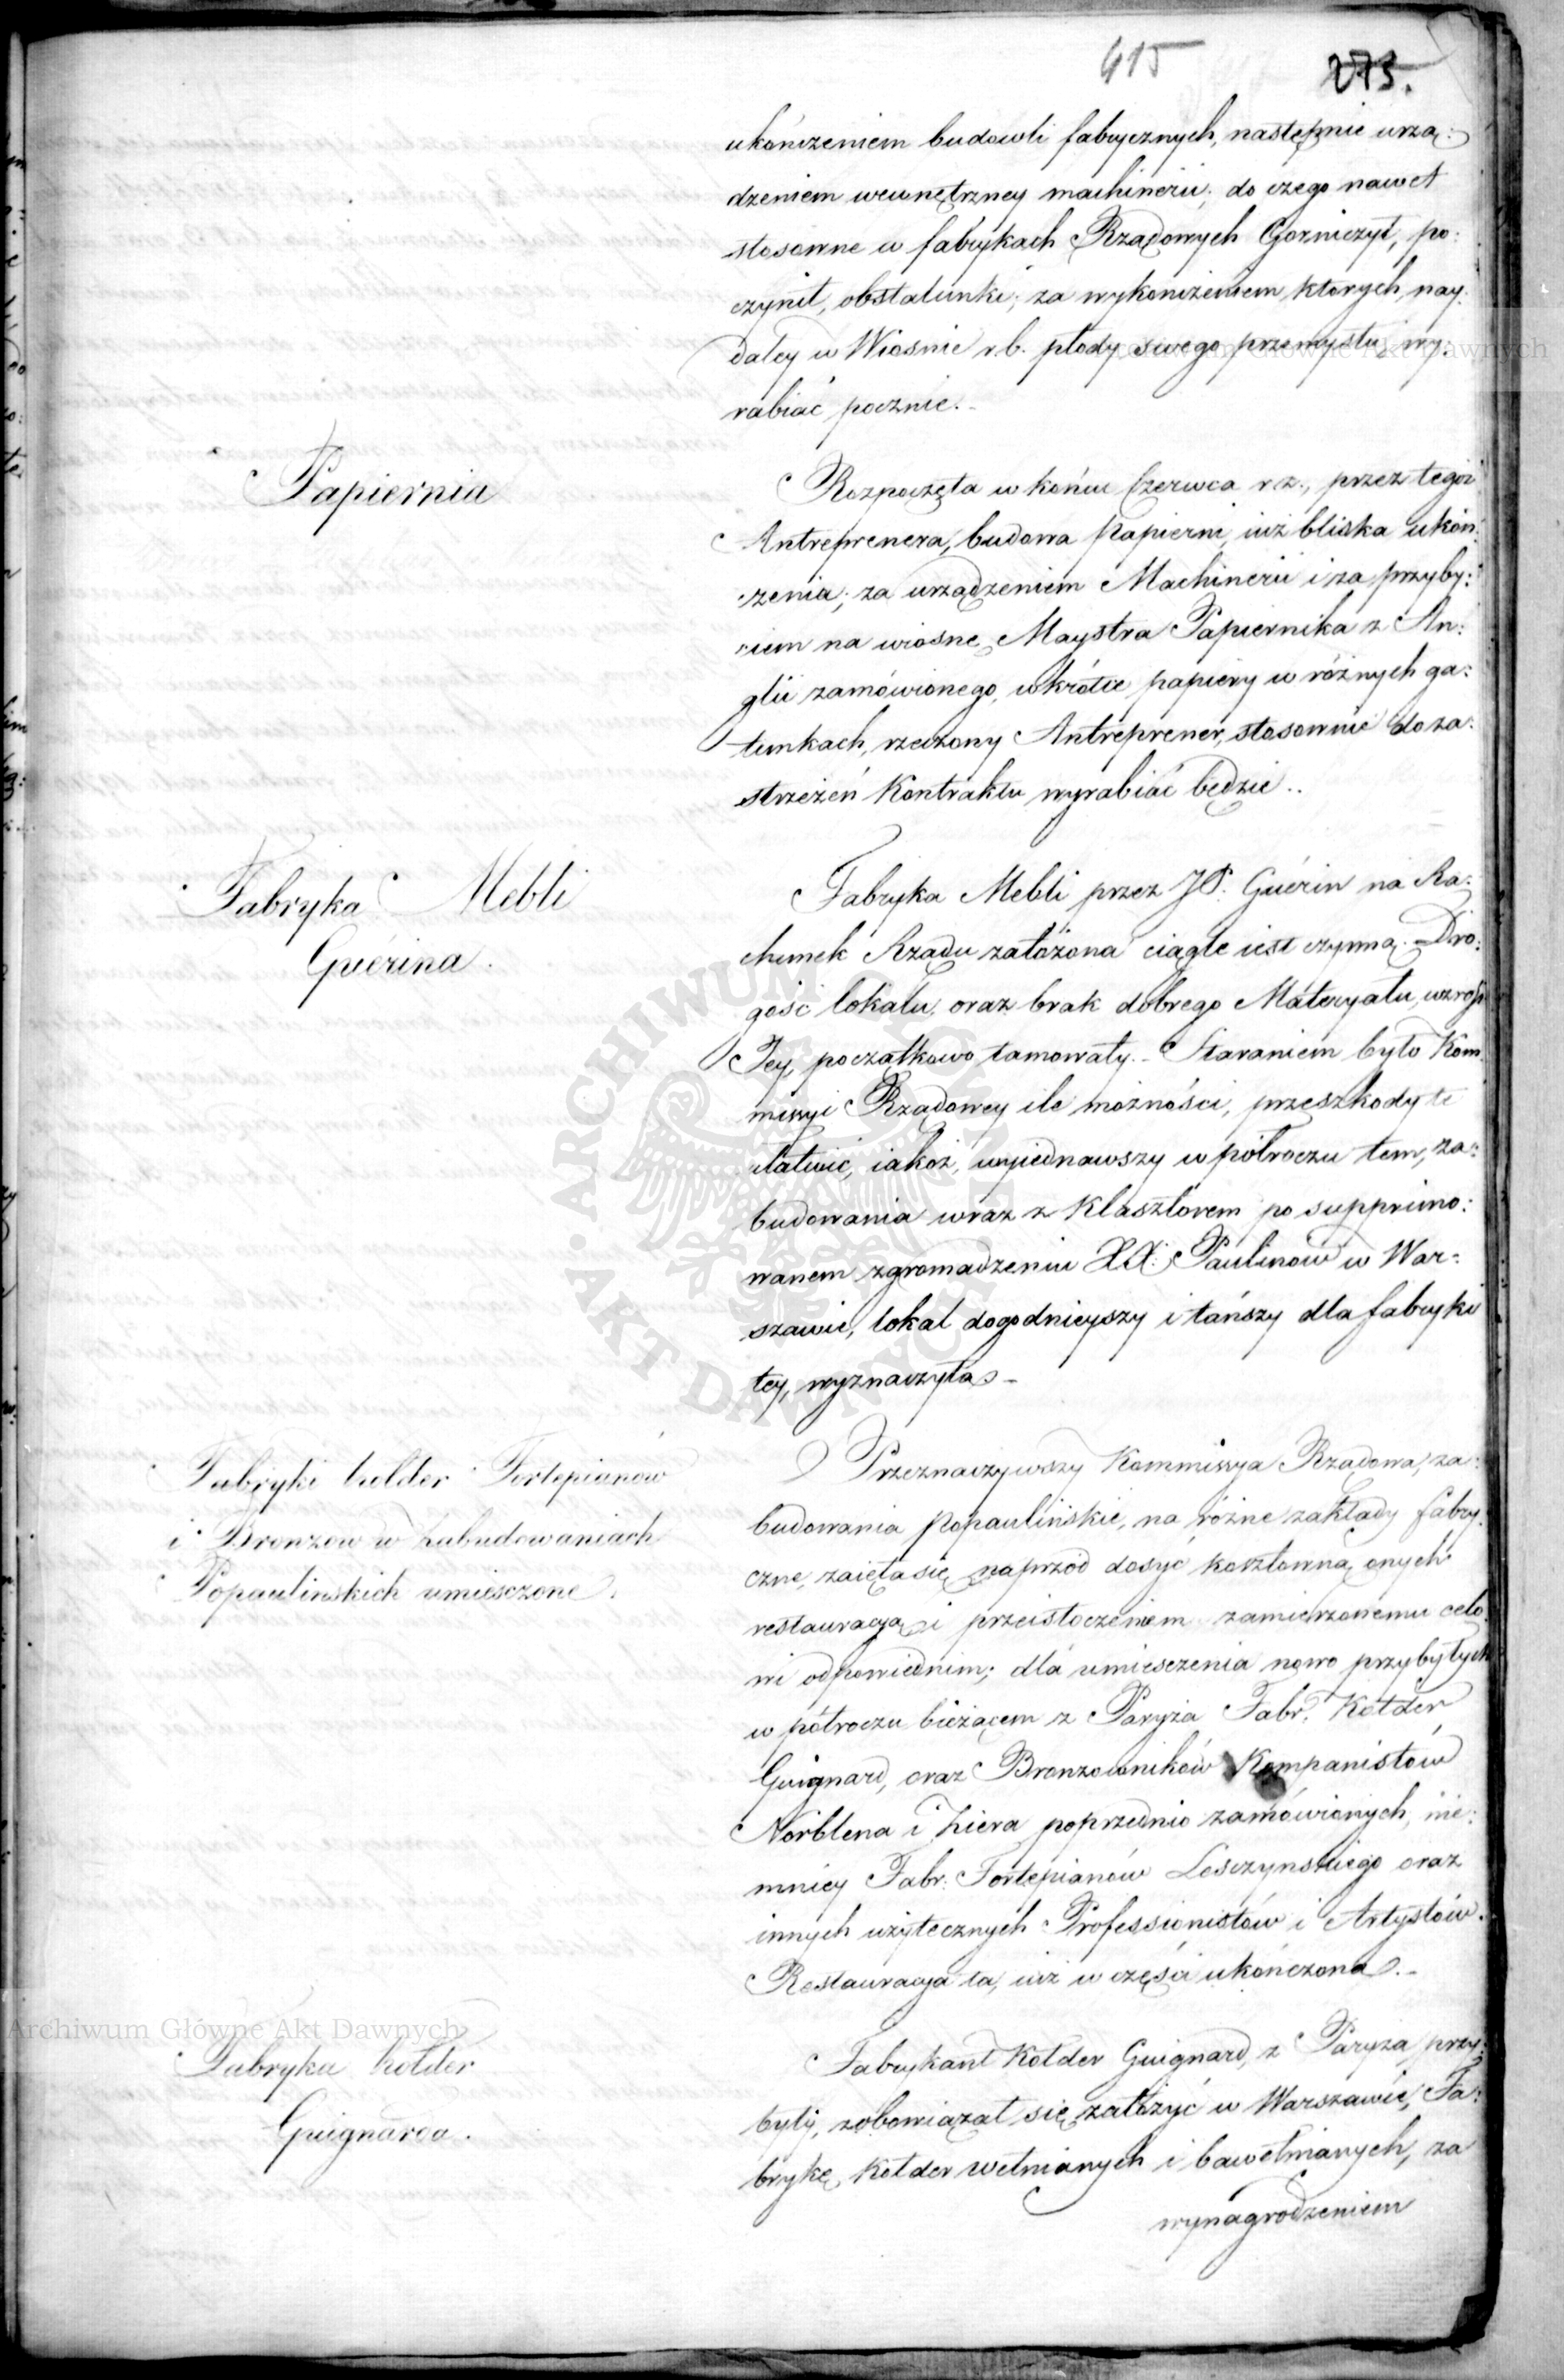 415 273.
ukończeniem budowli fabrycznych, następnie urzą:
dzeniem wewnętrzney machinerii; do czego nawet
stosowne w fabrykach Rządowych Gorniczyt, po:
czynił, obstalunki; za wykończeniem których, nay:
daley w Wiosnie r.b. płody swego przemysłu, wy:
rabiać pocznie.
Papiernia
Rozpoczęta w końcu Czerwca r.z., przez tegoż
Antreprenera, budowa Papierni, iuż bliska ukoń:
czenia; za urządzeniem Machinerii i za przyby:
ciem na wiosnę Maystra Papiernika z An:
glii zamówionego, wkrótce papiery w różnych ga:
tunkach, rzeczony Antreprener, stosownie do za:
strzeżeń Kontraktu wyrabiać będzie..
Fabryka Mebli
Guérina.
Fabryka Mebli przez JP. Guérin na Ra:
chunek Rządu założona ciągle iest czynną. Dro:
gość lokalu, oraz brak dobrego Materyału, wzrost
Jey, początkowo tamowały. Staraniem było Kom:
missyi Rządowey ile możności, przeszkody te
ułatwić, iakoż, wyiednawszy w półroczu tem, za:
budowania wraz z Klasztorem po supprimo:
wanem zgromadzeniu XX. Paulinów w War:
szawie, lokal dogodnieyszy i tańszy dla fabryki
tey, wyznaczyła.
Fabryki kołder Fortepianów
i Bronzow w zabudowaniach
Popaulinskich umiesczone.
Przeznaczywszy Kommissya Rządowa, za:
budowania Popaulińskie, na różne zakłady fabry:
czne, zaięła się naprzód dosyć kosztowną onych
restauracyą i przeistoczeniem zamierzonemu celo:
wi odpowiednim; dla umiesczenia nowo przybyłych
w półroczu bieżącem z Paryża Fabr. Kołder
Guignard, oraz Bronzowników Kompanistów
Norblena i Liera poprzednio zamówionych, nie:
mniey Fabr. Fortepianów Lesczynskiego oraz
innych użytecznych Professionistów i Artystów.
Restauracya ta, iuż w części ukończona.
Fabryka kołder
Guignarda.
Fabrykant Kołder Guignard, z Paryża przy:
były, zobowiązał się założyć w Warszawie, Fa:
brykę Kołder wełnianych i bawełnianych, za
wynagrodzeniem
Archiwum Główne Akt Dawnych